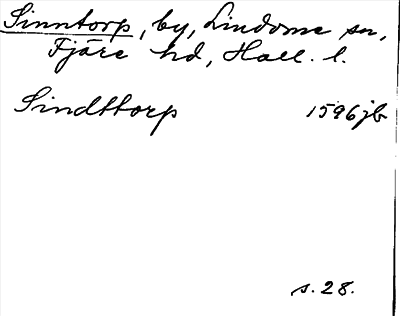 Sinntorp, by, Lindome sn,
Fjäre hd, Hall. l.
Sindttorp 1596 jb
s. 28.